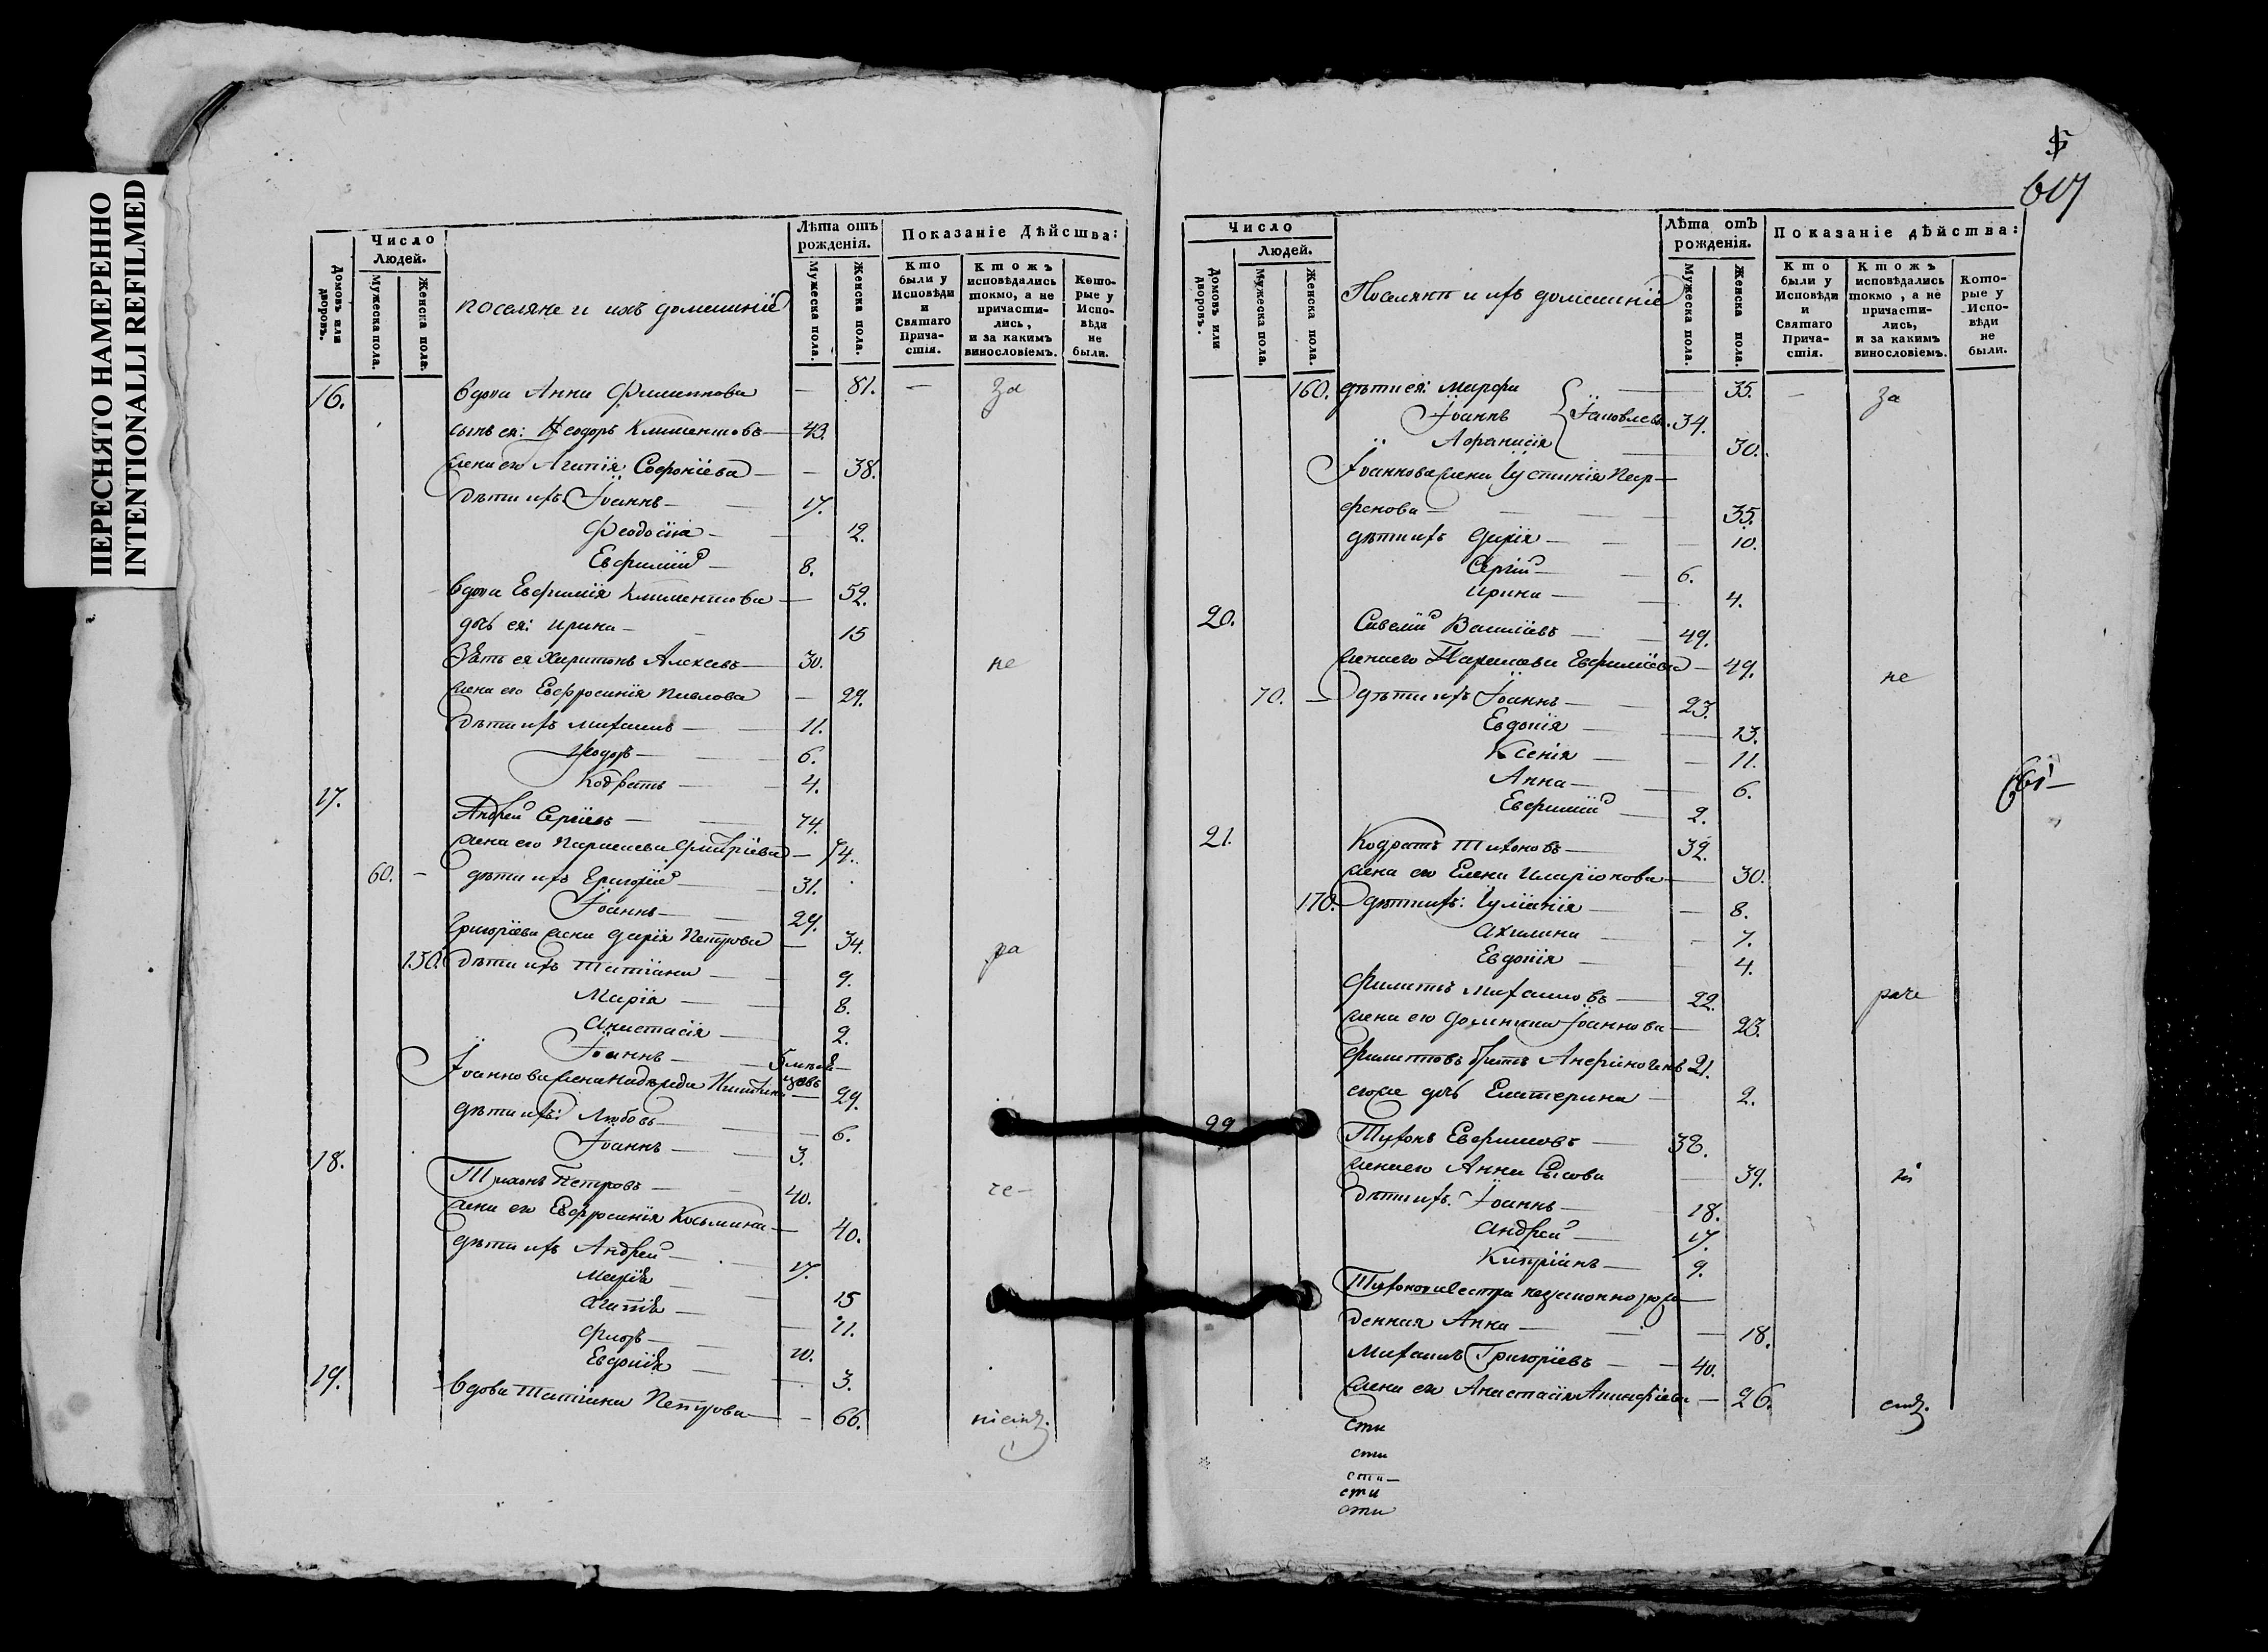 ПЕРЕСНЯТО НАМЕРЕННО
INTENTIONALLI REFILMED
Число
Людей.
Домовъ или дворовъ.
Мужеска пола.
Женска пола.
поселяне и ихъ домашнiе
Лѣта отъ рожденiя.
Мужеска пола.
Женска пола.
Показанiе Дѣйства:
Кто были у Исповѣди и Святаго Причастiя.
Ктожъ исповѣдались токмо, а не причастились, и за какимъ винословiемъ.
Которые у Исповѣди не были.
16. вдова Анна Филиппова — 81. — за
сынъ ея: Феодоръ Климентовъ — 43.
жена его Агапiя Софронiева — 38.
дѣти ихъ Iоаннъ — 17.
Феодосiа — 12.
Евфимiй — 8.
вдова Евфимiя Климентова — 52.
дочь ея: Ирина — 15
Зять ея Харитонъ Алексѣевъ — 30. не
жена его Евфросинiя Павлова — 29.
дѣти ихъ Михаилъ — 11.
Феодоръ — 6.
Кодратъ — 4.
17. Андрей Сергiевъ — 74.
жена его Параскева Дмитрiева — 74.
60. — дѣти ихъ Григорiй — 31.
Iоаннъ — 29.
Григорiева жена Дарiя Петрова — 34. ра
150. дѣти ихъ Татiана — 9.
Марiя — 8.
Анастасiя — 2.
Iоаннъ — 5 мѣсяцовъ
Iоаннова жена Надежда Никитина — 29.
дѣти ихъ: Любовь — 6.
Iоаннъ — 3.
18. Петровъ — 40. че-
жена его Евфросинiя Космина — 40.
дѣти ихъ Андрей — 17.
Марiя — 15
Агапiя — 11.
Флоръ — 10.
Евдокiя — 3.
19. вдова Татiана Петрова — 66.
$
617
Число
Людей.
Домовъ или дворовъ.
Мужеска пола.
Женска пола.
Поселяне и ихъ домашнiе
Лѣта отъ рожденiя.
Мужеска пола.
Женска пола.
Показанiе дѣйства:
Кто были у Исповѣди и Святаго Причастiя.
Ктожъ исповѣдались токмо, а не причастились, и за какимъ винословiемъ.
Которые у Исповѣди не были.
160. дѣти ея: Марфа — 35. — за
Iоаннъ Iаковлевы. 34.
Афанасiя — 30.
Iоаннова жена Iустинiя Пар-
фенова — 35.
дѣти ихъ Дарiя — 10.
Сергiй — 6.
Ирина — 4.
20. Савелiй Василiевъ — 49.
жена его Параскева Евфимiева — 49. не
70. — дѣти ихъ Iоаннъ — 23.
Евдокiя — 13.
Ксенiя — 11.
Анна — 6.
Евфимiй — 2.
21. Кодратъ Тихоновъ — 32.
жена его Елена Иларiонова — 30.
170. дѣти ихъ: Iулiанiя — 8.
Акилина — 7.
Евдокiя — 4.
Филиппъ Михаиловъ — 22. раче
жена его Домникiа Iоаннова — 23.
Филипповъ братъ Анфиногенъ 21.
его же дочь Екатерина — 2.
22. Тихонъ Евфимовъ — 38.
жена его Анна Сысова — 39.
дѣти ихъ. Iоаннъ — 18.
Андрей — 17.
Кипрiянъ — 9.
Тихонова сестра незаконнорож-
денная Анна — 18.
Михаилъ Григорiевъ — 40.
жена его Анастасiя — 26.
сти
сти
сти —
сти
сти